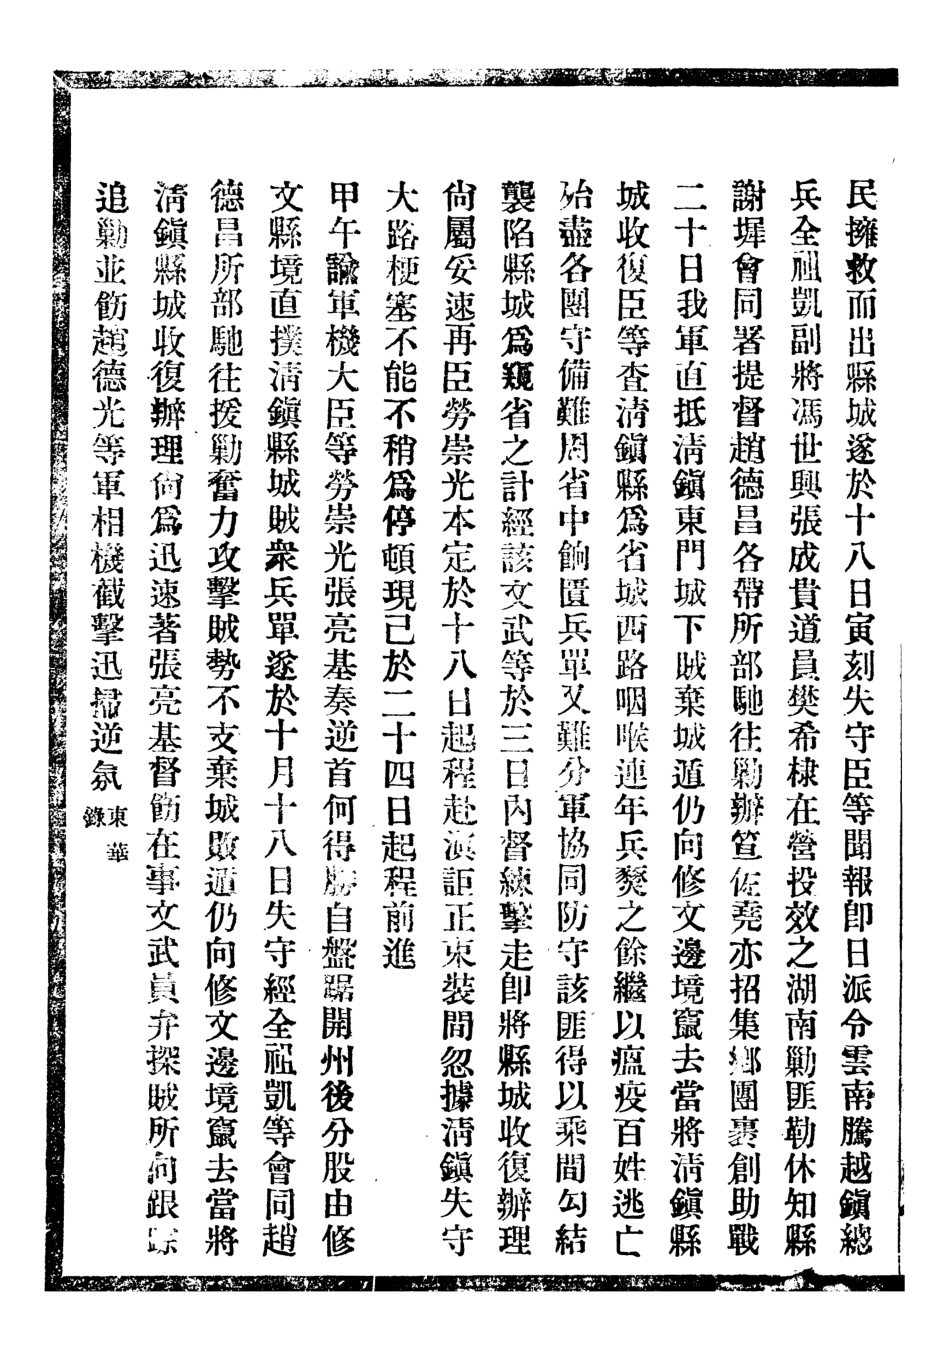 民擁救而出縣城遂於十八日寅刻失守臣等聞報卽日派令雲南騰越鎭總
兵全祖凱副將馮世興張成貴道員樊希棣在營投效之湖南勦匪勒休知縣
謝墀會同署提督趙德昌各帶所部馳往勦辦笪佐堯亦招集鄕團裹創助戰
二十日我軍直抵淸鎭東門城下賊棄城遁仍向修文邊境竄去當將淸鎭縣
城收復臣等查淸鎭縣爲省城西路咽喉連年兵燹之餘繼以瘟疫百姓逃亡
殆盡各團守備難周省中餉匱兵單又難分軍協同防守該匪得以乘間勾結
襲陷縣城爲窺省之計經該文武等於三日內督練擊走卽將縣城收復辦理
尙屬妥速再臣勞崇光本定於十八日起程赴滇詎正束裝間忽據淸鎭失守
大路梗塞不能不稍爲停頓現已於二十四日起程前進
甲午諭軍機大臣等勞崇光張亮基奏逆首何得勝自盤踞開州後分股由修
文縣境直撲淸鎭縣城賊衆兵單遂於十月十八日失守經全祖凱等會同趙
德昌所部馳往援勦奮力攻擊賊勢不支棄城敗遁仍向修文邊境竄去當將
淸鎭縣城收復辦理尙爲迅速著張亮基督飭在事文武員弁探賊所向跟踪
追勦並飭趙德光等軍相機截擊迅掃逆氛東華錄